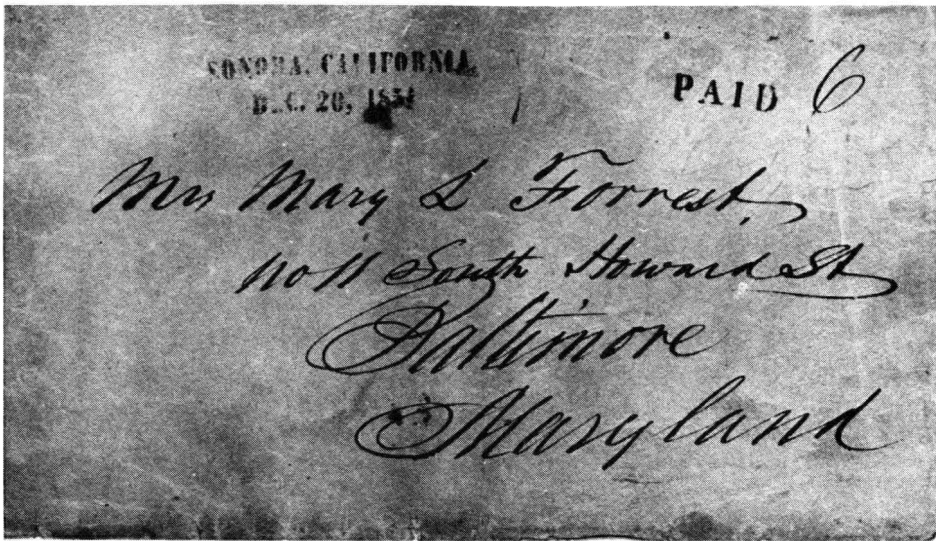 SONORA, CALIFORNIA,
DEC. 20,
PAID 6
Mrs Mary L Forrest,
No 11 South Howard St
Baltimore
Maryland